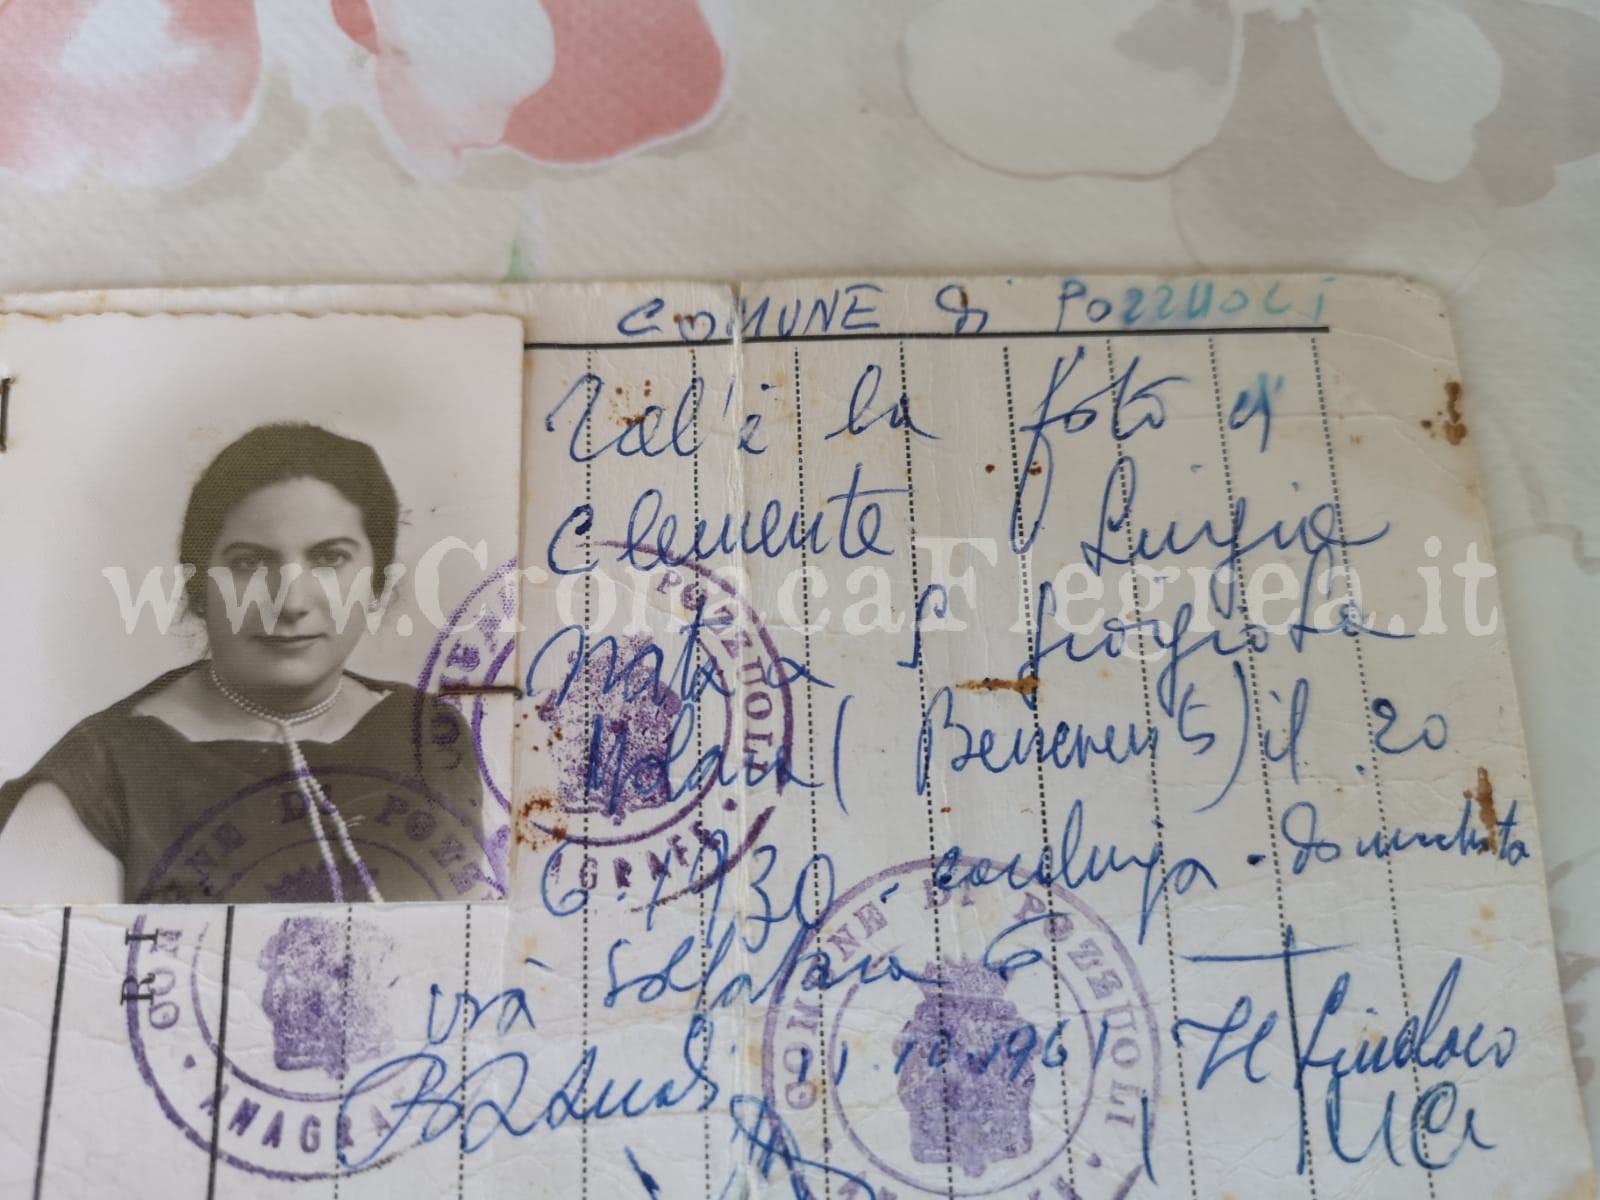 COMUNE di POZZUOLI
Tal'è la foto di
Clemente Luigia
nata a S Giorgio La
Molara (Benevento) il 20
6.1930 - coniuga - domiciliata
via Solfatara 6
Pozzuoli 11.10.1961 Il Sindaco
www.CronacaFlegrea.it
COMUNE DI POZZUOLI
ANAGRAFE
COMUNE DI POZZUOLI
ANAGRAFE
COMUNE DI POZZUOLI
RI